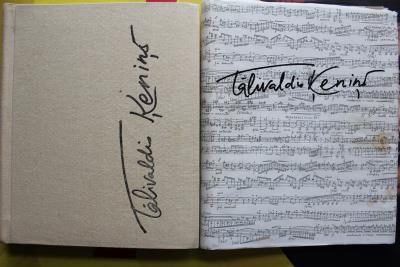 Tālivaldis Ķeniņš
Tālivaldis Ķeniņš